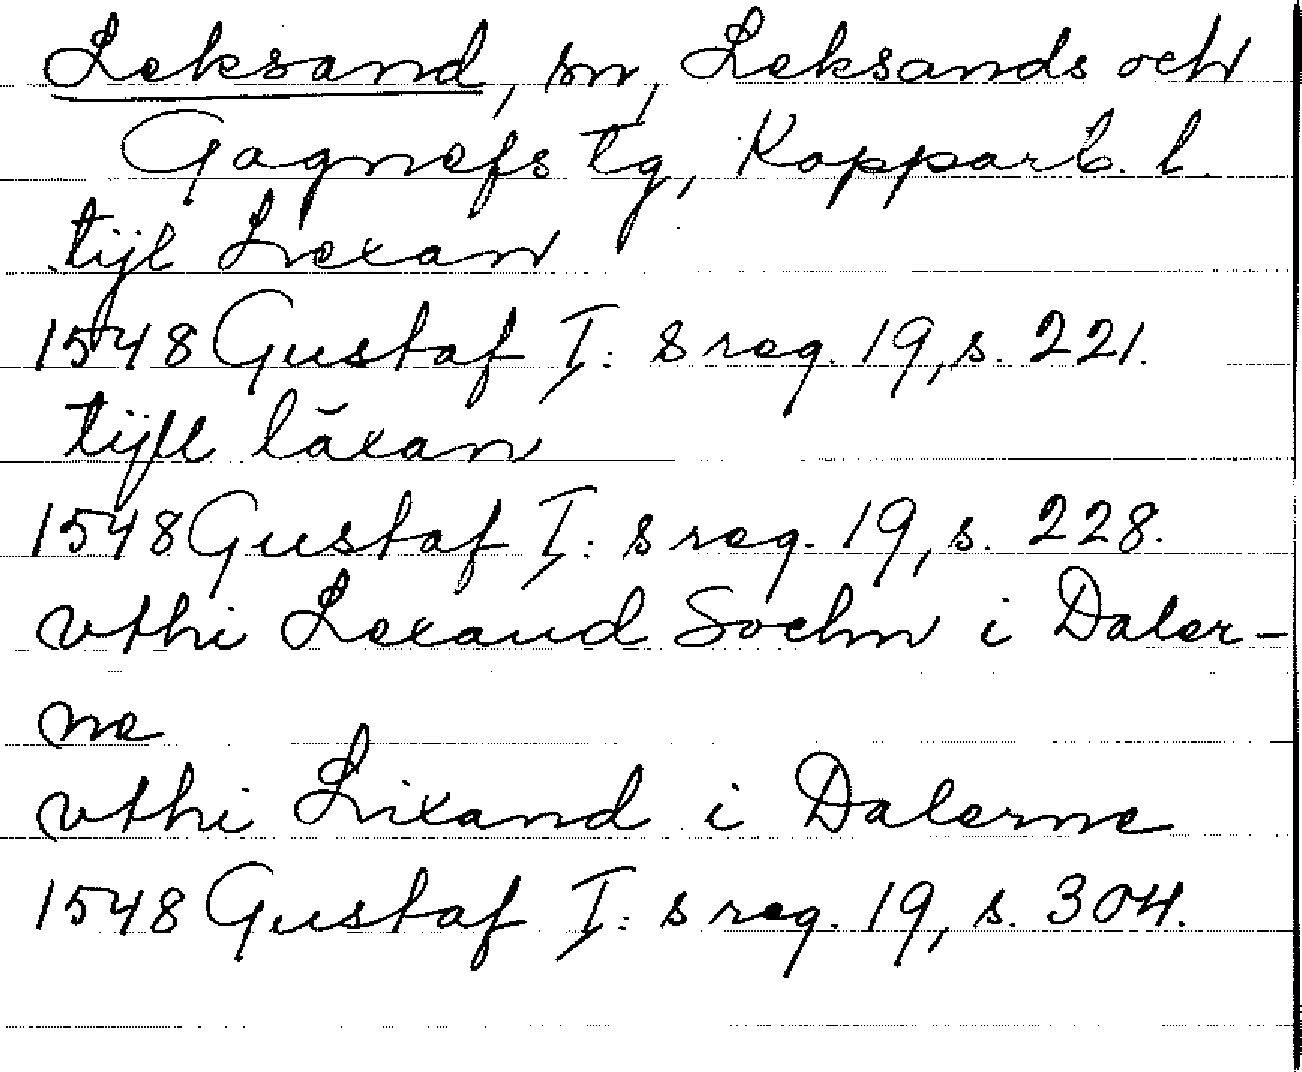 Leksand, sn, Leksands och
Gagnefs tg, Kopparb. l.
tijl Lexan
1548 Gustaf I: s reg. 19, s. 221.
tijll läxan
1548 Gustaf I: s reg. 19, s. 228.
vthi Lexand Sochn i Daler-
ne
vthi Lixand i Dalerne
1548 Gustaf I: s reg. 19, s. 304.